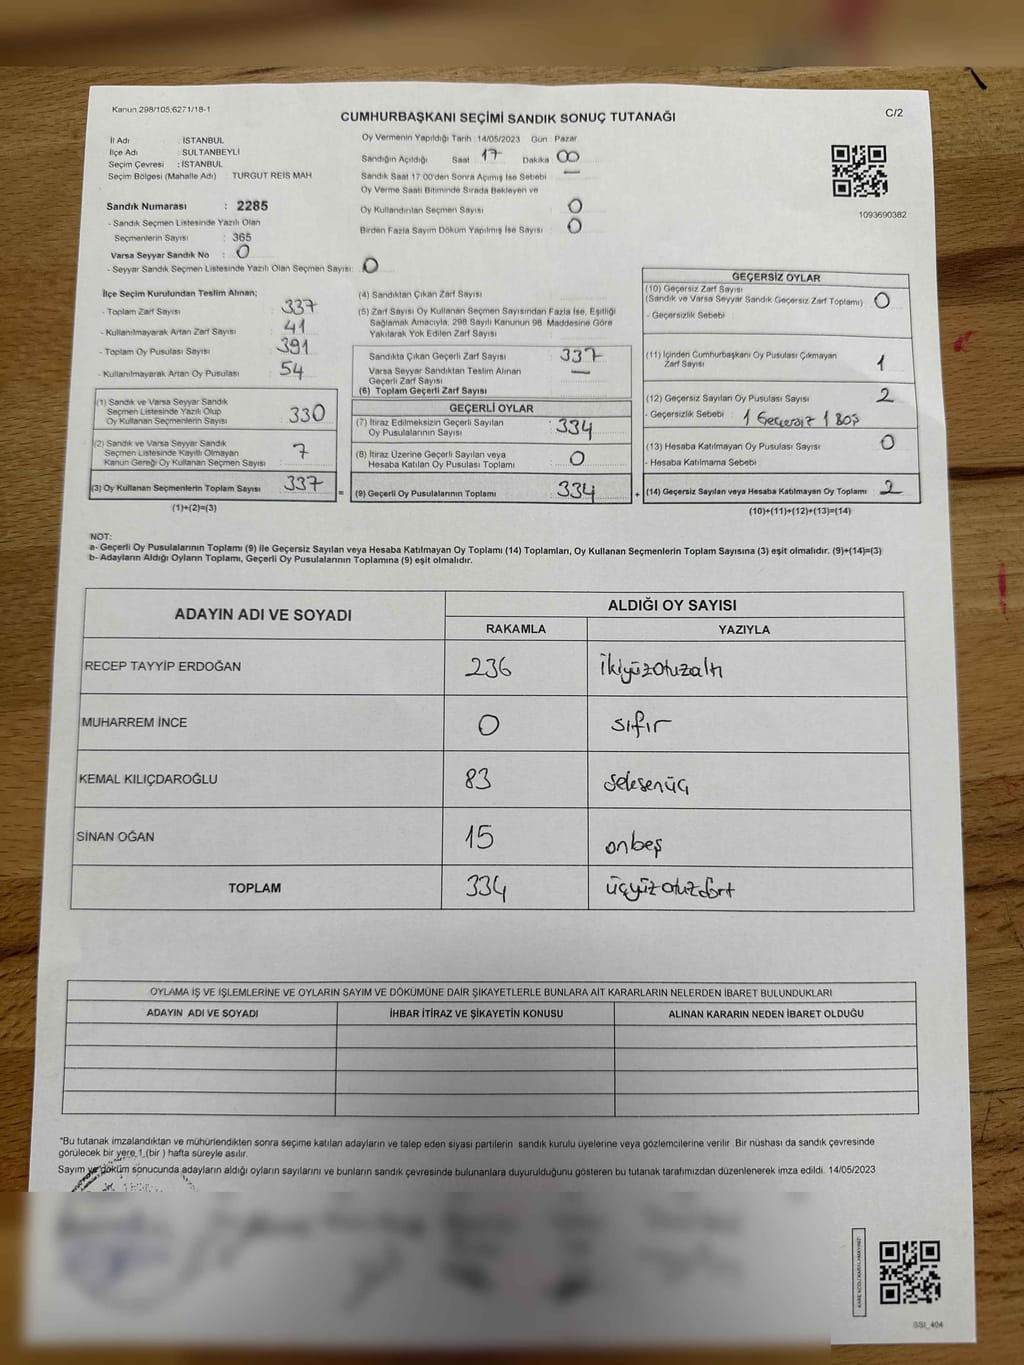 Kanun 298/105,6271/18-1
CUMHURBAŞKANI SEÇİMİ SANDIK SONUÇ TUTANAĞI
C/2
İl Adı : İSTANBUL
İlçe Adı : SULTANBEYLİ
Seçim Çevresi : İSTANBUL
Seçim Bölgesi (Mahalle Adı) : TURGUT REİS MAH
Oy Vermenin Yapıldığı Tarih : 14/05/2023 Gün : Pazar
Sandığın Açıldığı Saat 17 Dakika 00
Sandık Saat 17:00'den Sonra Açımış İse Sebebi —
Oy Verme Saati Bitiminde Sırada Bekleyen ve
Oy Kullandırılan Seçmen Sayısı 0
Birden Fazla Sayım Döküm Yapılmış İse Sayısı : 0
1093690382
Sandık Numarası : 2285
- Sandık Seçmen Listesinde Yazılı Olan
Seçmenlerin Sayısı : 365
Varsa Seyyar Sandık No : 0
- Seyyar Sandık Seçmen Listesinde Yazılı Olan Seçmen Sayısı: 0
İlçe Seçim Kurulundan Teslim Alınan;
- Toplam Zarf Sayısı : 337
- Kullanılmayarak Artan Zarf Sayısı : 41
- Toplam Oy Pusulası Sayısı : 391
- Kullanılmayarak Artan Oy Pusulası : 54
(1) Sandık ve Varsa Seyyar Sandık
Seçmen Listesinde Yazılı Olup
Oy Kullanan Seçmenlerin Sayısı : 330
(2) Sandık ve Varsa Seyyar Sandık
Seçmen Listesinde Kayıtlı Olmayan
Kanun Gereği Oy Kullanan Seçmen Sayısı : 7
(3) Oy Kullanan Seçmenlerin Toplam Sayısı : 337
(1)+(2)=(3)
(4) Sandıktan Çıkan Zarf Sayısı
(5) Zarf Sayısı Oy Kullanan Seçmen Sayısından Fazla İse, Eşitliği
Sağlamak Amacıyla, 298 Sayılı Kanunun 98. Maddesine Göre
Yakılarak Yok Edilen Zarf Sayısı
Sandıkta Çıkan Geçerli Zarf Sayısı : 337
Varsa Seyyar Sandıktan Teslim Alınan
Geçerli Zarf Sayısı —
(6) Toplam Geçerli Zarf Sayısı
GEÇERLİ OYLAR
(7) İtiraz Edilmeksizin Geçerli Sayılan
Oy Pusulalarının Sayısı : 334
(8) İtiraz Üzerine Geçerli Sayılan veya
Hesaba Katılan Oy Pusulası Toplamı : 0
= (9) Geçerli Oy Pusulalarının Toplamı : 334
GEÇERSİZ OYLAR
(10) Geçersiz Zarf Sayısı
(Sandık ve Varsa Seyyar Sandık Geçersiz Zarf Toplamı) : 0
- Geçersizlik Sebebi :
(11) İçinden Cumhurbaşkanı Oy Pusulası Çıkmayan
Zarf Sayısı 1
(12) Geçersiz Sayılan Oy Pusulası Sayısı 2
- Geçersizlik Sebebi : 1 Geçersiz 1 BOŞ
(13) Hesaba Katılmayan Oy Pusulası Sayısı 0
- Hesaba Katılmama Sebebi
+ (14) Geçersiz Sayılan veya Hesaba Katılmayan Oy Toplamı : 2
(10)+(11)+(12)+(13)=(14)
NOT:
a- Geçerli Oy Pusulalarının Toplamı (9) ile Geçersiz Sayılan veya Hesaba Katılmayan Oy Toplamı (14) Toplamları, Oy Kullanan Seçmenlerin Toplam Sayısına (3) eşit olmalıdır. (9)+(14)=(3)
b- Adayların Aldığı Oyların Toplamı, Geçerli Oy Pusulalarının Toplamına (9) eşit olmalıdır.
ADAYIN ADI VE SOYADI
ALDIĞI OY SAYISI
RAKAMLA YAZIYLA
RECEP TAYYİP ERDOĞAN 236 ikiyüzotuzaltı
MUHARREM İNCE 0 sıfır
KEMAL KILIÇDAROĞLU 83 seksenüç
SİNAN OĞAN 15 onbeş
TOPLAM 334 üçyüzotuzdört
OYLAMA İŞ VE İŞLEMLERİNE VE OYLARIN SAYIM VE DÖKÜMÜNE DAİR ŞİKAYETLERLE BUNLARA AİT KARARLARIN NELERDEN İBARET BULUNDUKLARI
ADAYIN ADI VE SOYADI İHBAR İTİRAZ VE ŞİKAYETİN KONUSU ALINAN KARARIN NEDEN İBARET OLDUĞU
*Bu tutanak imzalandıktan ve mühürlendikten sonra seçime katılan adayların ve talep eden siyasi partilerin sandık kurulu üyelerine veya gözlemcilerine verilir. Bir nüshası da sandık çevresinde
görülecek bir yere 1 (bir) hafta süreyle asılır.
Sayım ve döküm sonucunda adayların aldığı oyların sayılarını ve bunların sandık çevresinde bulunanlara duyurulduğunu gösteren bu tutanak tarafımızdan düzenlenerek imza edildi. 14/05/2023
SSI_404